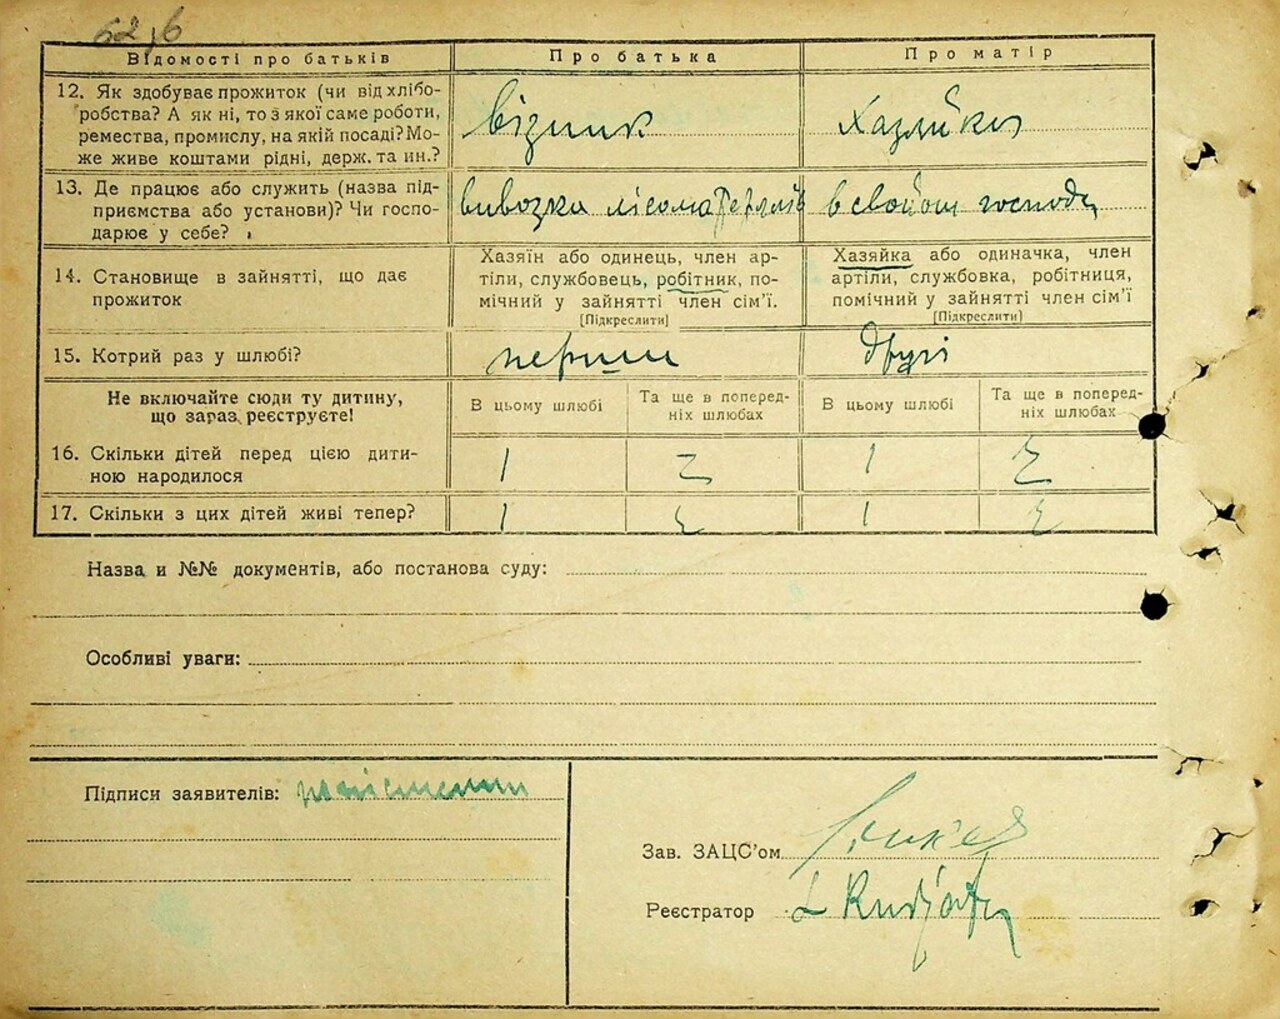 62,6
Відомості про батьків Про батька Про матір
12. Як здобуває прожиток (чи від хлібо-
робства? А як ні, то з якої саме роботи,
ремества, промислу, на якій посаді? Мо-
же живе коштами рідні, держ. та ин.?
візник
Хазяйка
13. Де працює або служить (назва під-
приємства або установи)? Чи госпо-
дарює у себе?
вивозка
в своїй господі
14. Становище в зайнятті, що дає
прожиток
Хазяїн або одинець, член ар-
тіли, службовець, робітник, по-
мічний у зайнятті член сім'ї.
[Підкреслити]
Хазяйка або одиначка, член
артіли, службовка, робітниця,
помічний у зайнятті член сім'ї
[Підкреслити]
15. Котрий раз у шлюбі?
перший
другі
Не включайте сюди ту дитину,
що зараз реєструєте!
В цьому шлюбі
Та ще в поперед-
ніх шлюбах
В цьому шлюбі
Та ще в поперед-
ніх шлюбах
16. Скільки дітей перед цією дити-
ною народилося
1 1
17. Скільки з цих дітей живі тепер?
1 1
Назва и №№ документів, або постанова суду:
Особливі уваги:
Підписи заявителів:
Зав. ЗАЦС'ом
Реєстратор